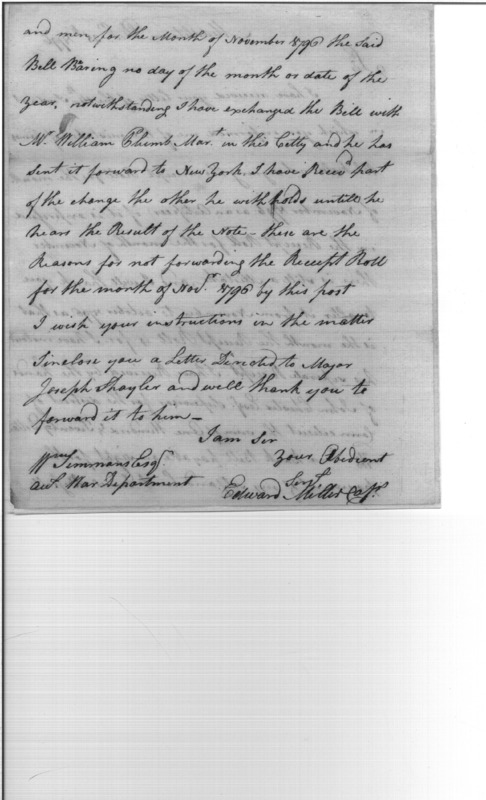 and men for the Month of November 1796 the Said
Bill Baring no day of the month or date of the
Year, notwithstanding I have exchanged the Bill with
Mr. William Plumb Mart. in this Citty and he has
sent it forward to New York. I have Receivd part
of the change the other he withholds untill he
hears the Result of the Note - these are the
Reasons for not forwarding the Receipt Roll
for the month of Novr. 1796 by this post
I wish your instructions in the matter
I inclose you a Letter Directed to Major
Joseph Shayler and well thank you to
forward it to him -
I am Sir
Your Obedient
Servt.
Wm Simmons Esqr
act. War Department
Edward Miller Capt.